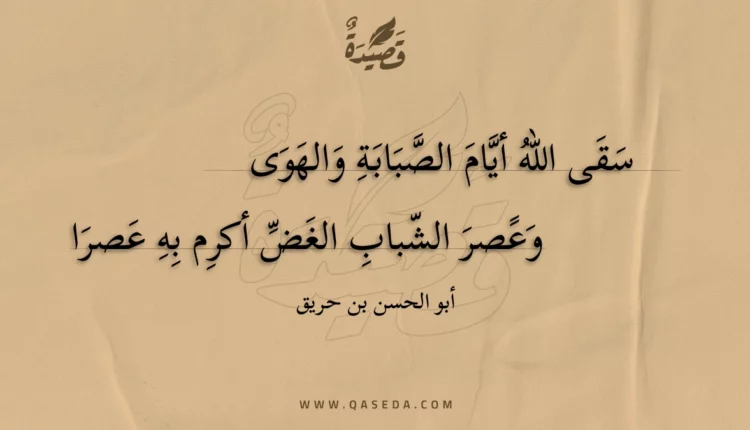 قَصِيدَةٌ
سَقَى اللهُ أيَّامَ الصَّبَابَةِ وَالهَوَى
وَعًصرَ الشّبابِ الغَضِّ أكرِم بِهِ عَصرَا
أبو الحسن بن حريق
WWW.QASEDA.COM